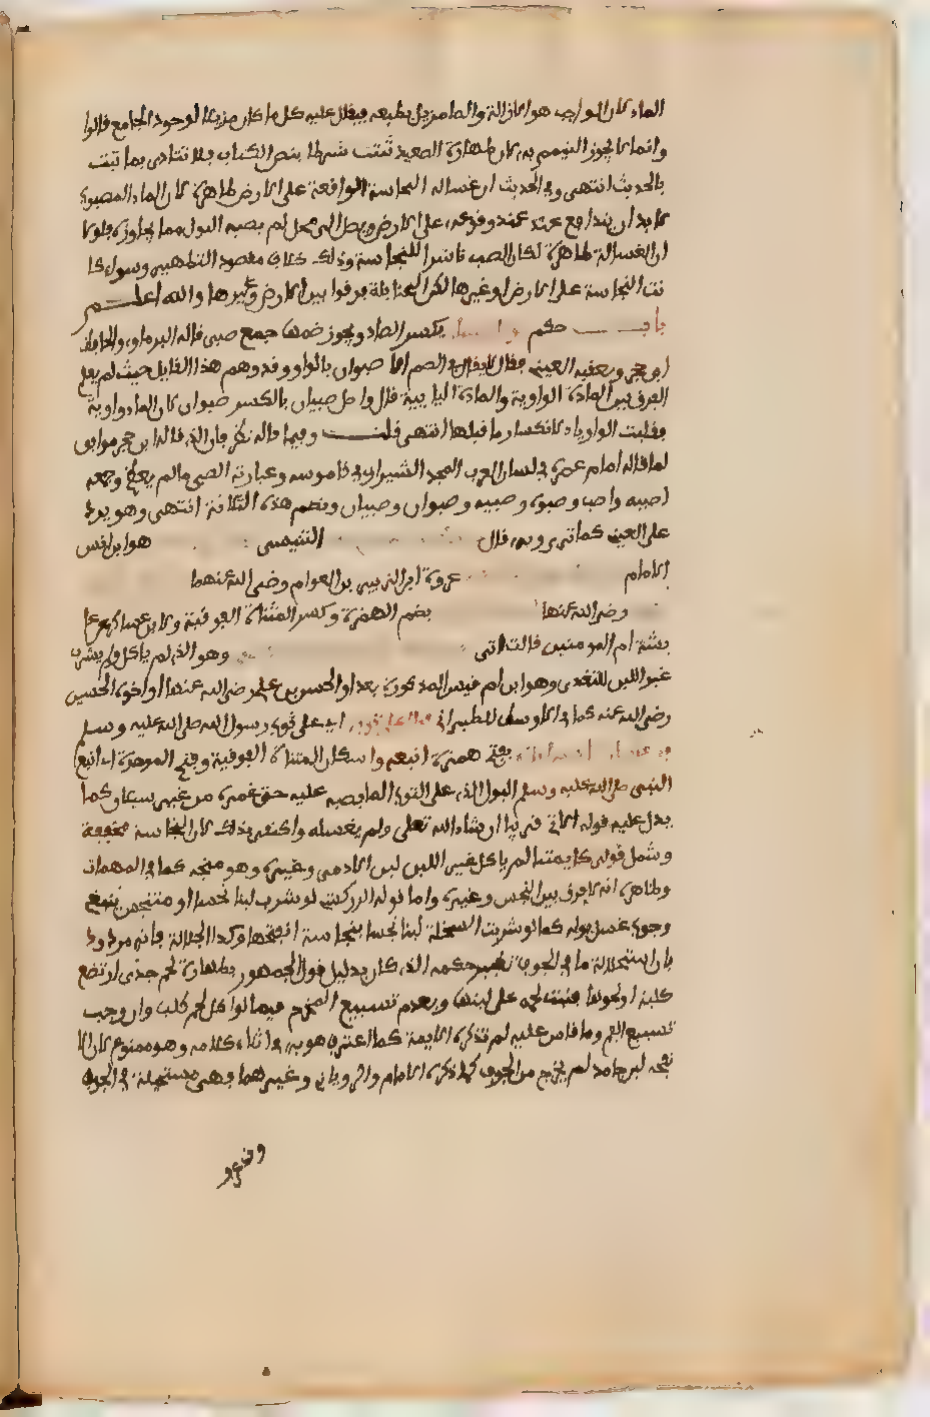 الماء لان الواجب هو الازالة والماء مزيل بطبعه فيقاس عليه كل ما كان مزيلا لوجود الجامع قالوا
وانما لا يجوز التيمم به لان طهارة الصعيد ثبتت شرطا بنص الكتاب فلا تتادى بما ثبت
بالحديث انتهى وفي الحديث ان غسالة النجاسة الواقعة على الارض طاهرة لان الماء المصبوب
لا بد ان يتدافع عند وقوعه على الارض ويصل الى محل لم يصبه البول مما يجاوره فلولا
ان الغسالة طاهرة لكان الصب ناشرا للنجاسة وذلك خلاف مقصود التطهير وسواء كا
نت النجاسة على الارض او غيرها لكن الحنابلة فرقوا بين الارض وغيرها والله اعلم
باب حكم بكسر الصاد ويجوز ضمها جمع صبي قاله البرماوي والحافظ
ابن حجر وتعقبه العيني فقال لا يقال الصم الا صبوان بالواو وقد وهم هذا القايل حيث لم يعلم
الفرق بين المادة الواوية والمادة اليايية قال واصل صبيان بالكسر صبوان لان المادة واوية
فقلبت الواو ياء لانكسار ما قبلها انتهى قلت وفيما قاله نظر فان الذي قاله ابن حجر موافق
لما قاله امام عصره في لسان العرب المجد الشيرازي في قاموسه وعبارته الصبي من لم يفطم وجمعه
اصبية واصب وصبوة وصبية وصبوان وصبيان وتضم هذه الثلاثة انتهى وهو يرد
على العيني كما ترى وبه قال التنيسي هو ابن انس
الامام عروة ابن الزبير بن العوام رضي الله عنهما
رضي الله عنها بضم الهمزة وكسر المثناة الفوقية ولابن عساكر عن عا
يشة ام المومنين قالت اتي وهو الذي لم ياكل ولم يشرب
غير اللبن للتغذي وهو ابن ام قيس المذكورة بعد او الحسن بن علي رضي الله عنهما او اخوه الحسين
رضي الله عنه كما في الاوسط للطبراني فبال على ثوبه اي على ثوب رسول الله صلى الله عليه وسلم
بفتح همزة اتبعه واسكان المثناة الفوقية وفتح الموحدة اي اتبع
النبي صلى الله عليه وسلم البول الذي على الثوب الماء بصبه عليه حتى غمره من غير سيلان كما
يدل عليه قوله الاتي قريبا ان شاء الله تعلى ولم يغسله واكتفى بذلك لان النجاسة مخففة
وشمل قوله كايمتنا لم ياكل غير اللبن لبن الادمي وغيره وهو متجه كما في المهمات
وظاهره انه لا فرق بين النجس وغيره واما قول الزركشي لو شرب لبنا نجسا او متنجسا ينبغي
وجوب غسل بوله كما لو شربت السخلة لبنا نجسا بنجاسة انفحتها وكذا الجلالة فانه مردود
بان استحالة ما في الجوف تغير حكمه الذي كان بدليل قول الجمهور بطهارة لحم جدي ارتضع
كلبة او نحوها فنبت لحمه على لبنها وبعدم تسبيع المخرج فيما لو اكل لحم كلب وان وجب
تسبيع الفم وما قاس عليه لم تذكره الايمة كما اعترف هو به في اثناء كلامه وهو ممنوع لان الا
نفحة لبن جامد لم يخرج من الجوف كما ذكره الامام والروياني وغيرهما وهي مستحيلة في الجوف